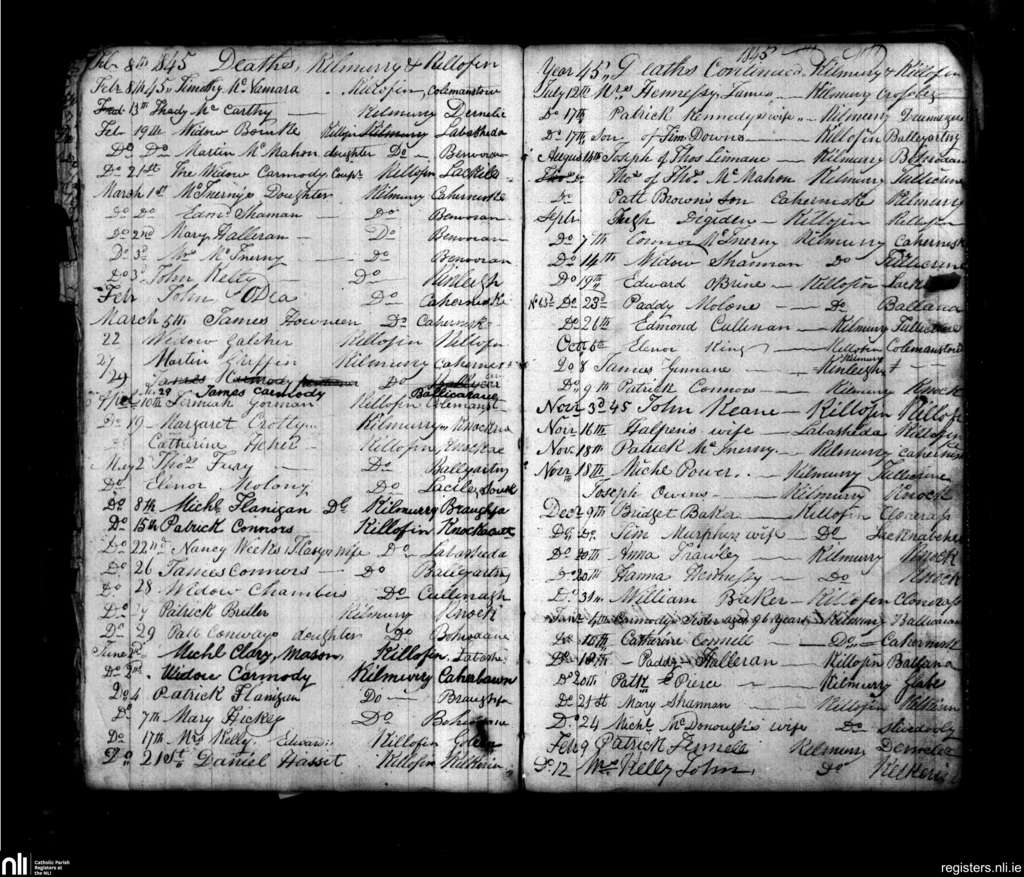 Feb 8th 1845 Deaths, Kilmurry & Killofin
Feb 8th 45 Timothy Mc Namara Killofin, Colemanstow
Feb 13th Thady Mc Carthy Kilmurry Dernelie
Feb 19th Widow Bourke Killofin Kilmurry Labasheda
Do Do Martin Mc Mahon daughter Do Benvoran
Do 21st The Widow Carmody Killofin Lackile
March 1st Mc Inernys Doughter Kilmurry Caherniske
Do Do Edmd Shaman Do Benvoran
Do 2nd Mary Halleran Do Benvoran
Do 3d Mrs Mc Inerny Do Benvoran
Do 3d John Kelly Do Kinleigh
Feb John ODea Do Caherniske
March 5th James Howneen Do Cahernisk
22 Widow Galcher Killofin Killofin
27 Martin Griffin Kilmurry Cahernisk
29 James Do
No 29 James Carmody Ballicarane
10th Jermiah Gorman Killofin Colemanst
Do 19 Margaret Crotty Kilmurry Knockna
Catherine Heher Killofin
May 2 Thos Fury Do Ballgartny
Do Elenor Molony Do Lacile
Do 8th Michl Flanigan Do Kilmurry Braughfa
Do 15th Patrick Connors Killofin
Do 22nd Nancy Weeks wife Do Labasheda
Do 26 James Connors Do Ballgartny
Do 28 Widow Chambers Do Cullenagh
Do Patrick Butler Kilmurry Knock
Do 29 Patt Conways doughter Do
June 2d Michl Clary, Mason, Killofin Labashe
Do 2nd Widow Carmody Kilmurry Cahrabawn
Do 4 Patrick Flanigan Do Braughfa
Do 7th Mary Hickey Do
Do 17th Mrs Kelly, Edward Killofin
Do 21st Daniel Hasset Killofin Kilkerin
1845
Year 45, Deaths Continued, Kilmurry & Killofin
July 12th Mrs Hennessy, James Kilmurry Crosses
Do 17th Patrick Kennedys wife Kilmurry
Do 17th Son of Jim Downs Killofin Ballygartny
August 14th Joseph of Thos Linnane Kilmurry
Thos of Thos Mc Mahon Kilmurry Tullicrine
Do Patt Browns son Caherniske Kilmurry
Septr Hugh Degiden Killofin Killofin
Do 7th Connor Mc Inerny Kilmurry Cahernisk
Do 14th Widow Shannan Do Tullicrine
Do 19th Edward OBrine Killofin Lack
Do 23d Paddy Molone Do Ballana
Do 26th Edmond Cullinan Kilmurry Tullicrine
Oct 6th Elenor King Killofin Colemanstow
Do 8 James Ginnane Kilmurry Kinleigh
Do 9th Patrick Connors Kilmurry Knock
Novr 3d 45 John Keane Killofin Killofi
Novr 16th Halpens wife Labasheda Killofin
Nov 18th Patrick Mc Inerny Kilmurry Cahernisk
Novr 18th Michl Power Kilmurry Tullicrine
Joseph Owens Kilmurry Knock
Decr 9th Bridget Baker Killofin Cloncrass
Do Do Jim Murphys wife Do
Do 20th Anna Frawley Kilmurry Knock
Do 20th Hanna Hennessy Do Knock
Do 31st William Baker Killofin Cloncrass
Jan 4th Carmodys Sister aged 96 Years Kilmurry
Do 16th Catherine Connell Do Cahernisk
Do 18th Paddy Halleran Killofin Ballana
Do 20th Patk Pierce Kilmurry Glebe
Do 21st Mary Shannan Killofin Kilkerin
Do 24 Michl Mc Donough's wife Do
Feb 9 Patrick Kilmurry
Do 12 Mrs Kelly John, Do Kilkerin
nli
Catholic Parish
Registers at
the NLI
registers.nli.ie